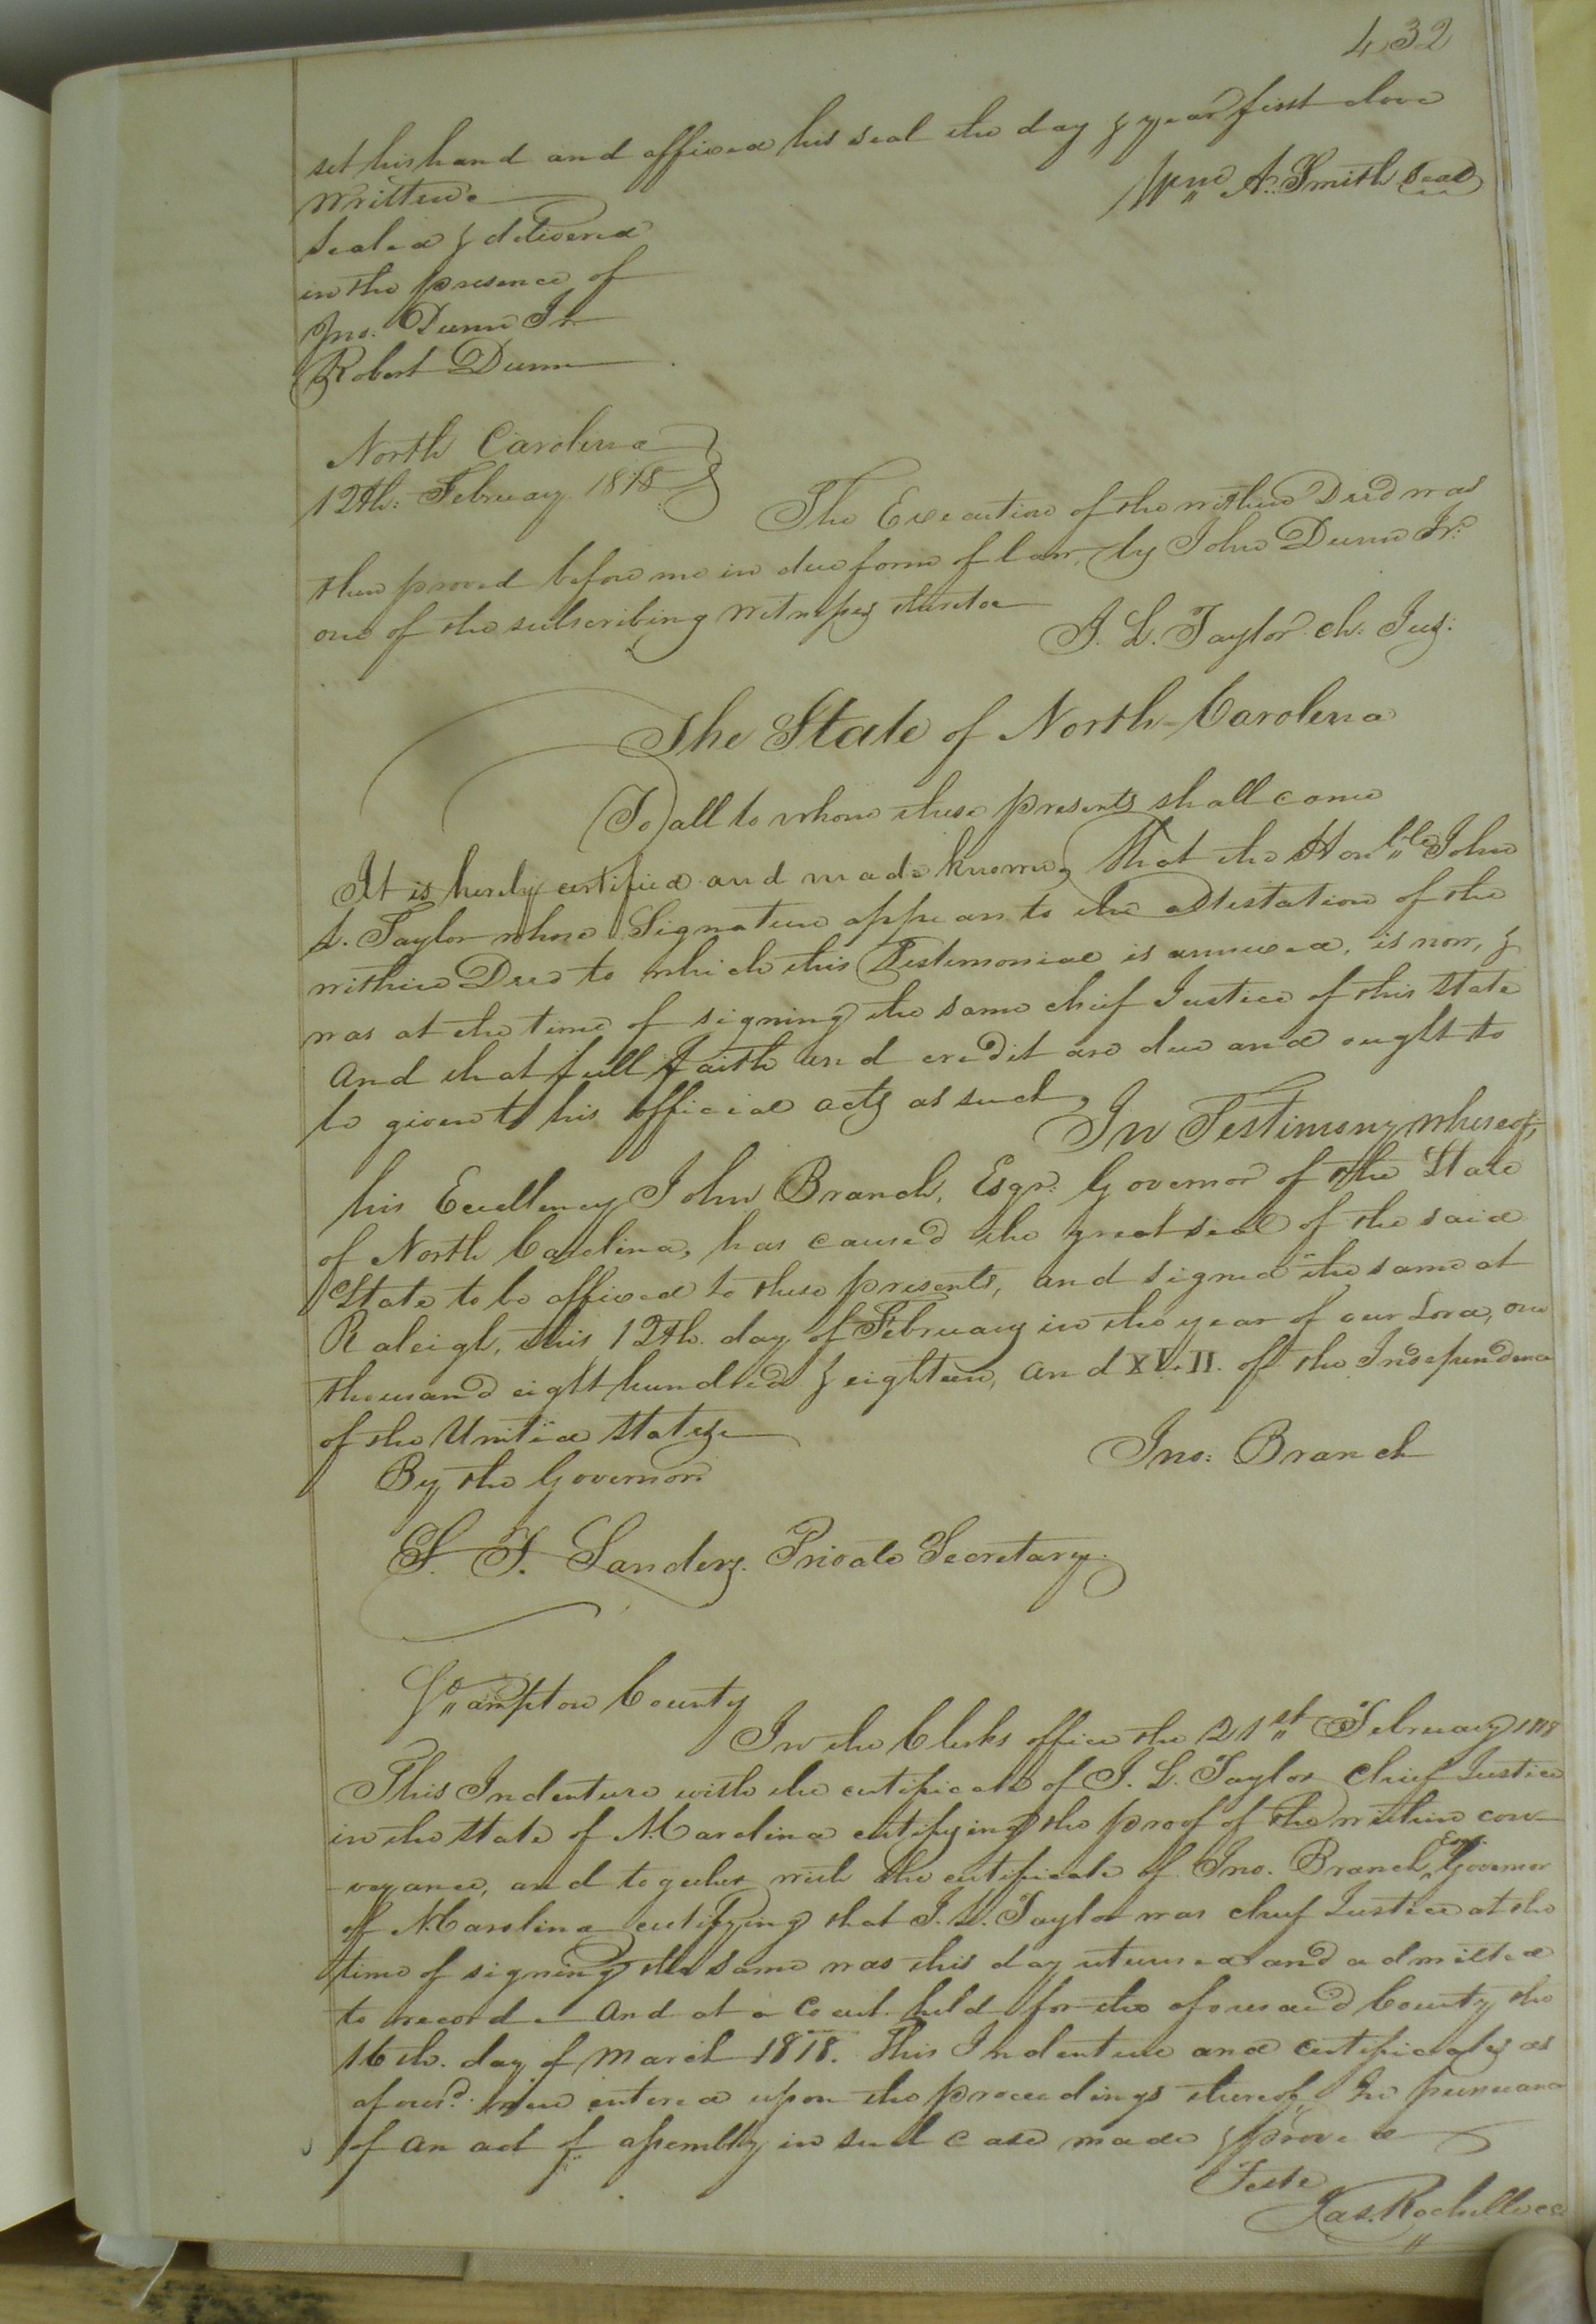 432
set his hand and affixed his seal the day & year first above
written
Wm A. Smith Seal
Sealed & delivered
in the presence of
Jno. Dunn Jr
Robert Dunn
North Carolina
12th: February 1818
The Execution of the within Deed was
then proved before me in due form of law, by John Dunn Jr:
one of the subscribing witnesses thereto
J. L. Taylor ch: Jus:
The State of North-Carolina
To all to whom these presents shall come
It is hereby certified and made known, that the Honble John
L. Taylor whose Signature appears to the attestation of the
within Deed to which this Testimonial is annexed, is now, &
was at the time of signing the same chief Justice of this State
And that full faith and credit are due and ought to
be given to his official acts as such,
In Testimony whereof,
his Excellency John Branch, Esqr: Governor of the State
of North Carolina, has caused the great seal of the said
State to be affixed to these presents, and signed the same at
Raleigh, this 12th. day of February in the year of our Lord, one
thousand eight hundred & eighteen, and XLII. of the Independence
of the United States
Jno: Branch
By the Governor
Private Secretary.
So,,ampton County
In the Clerks office the 21st February 1818
This Indenture with the certificate of J. L. Taylor Chief Justice
in the State of N.Carolina certifying the proof of the within con-
-veyance, and together with the certificate of Jno. Branch, Esqr. Governor
of N.Carolina certifying that J. L. Taylor was chief Justice at the
time of signing the same was this day returned and admitted
to record. And at a Court held for the aforesaid County the
16th. day of March 1818. This Indenture and certificates as
aforesd. were entered upon the proceedings thereof, In pursuance
of an act of assembly in such case made & proved
Teste
Jas. Rochelle cc